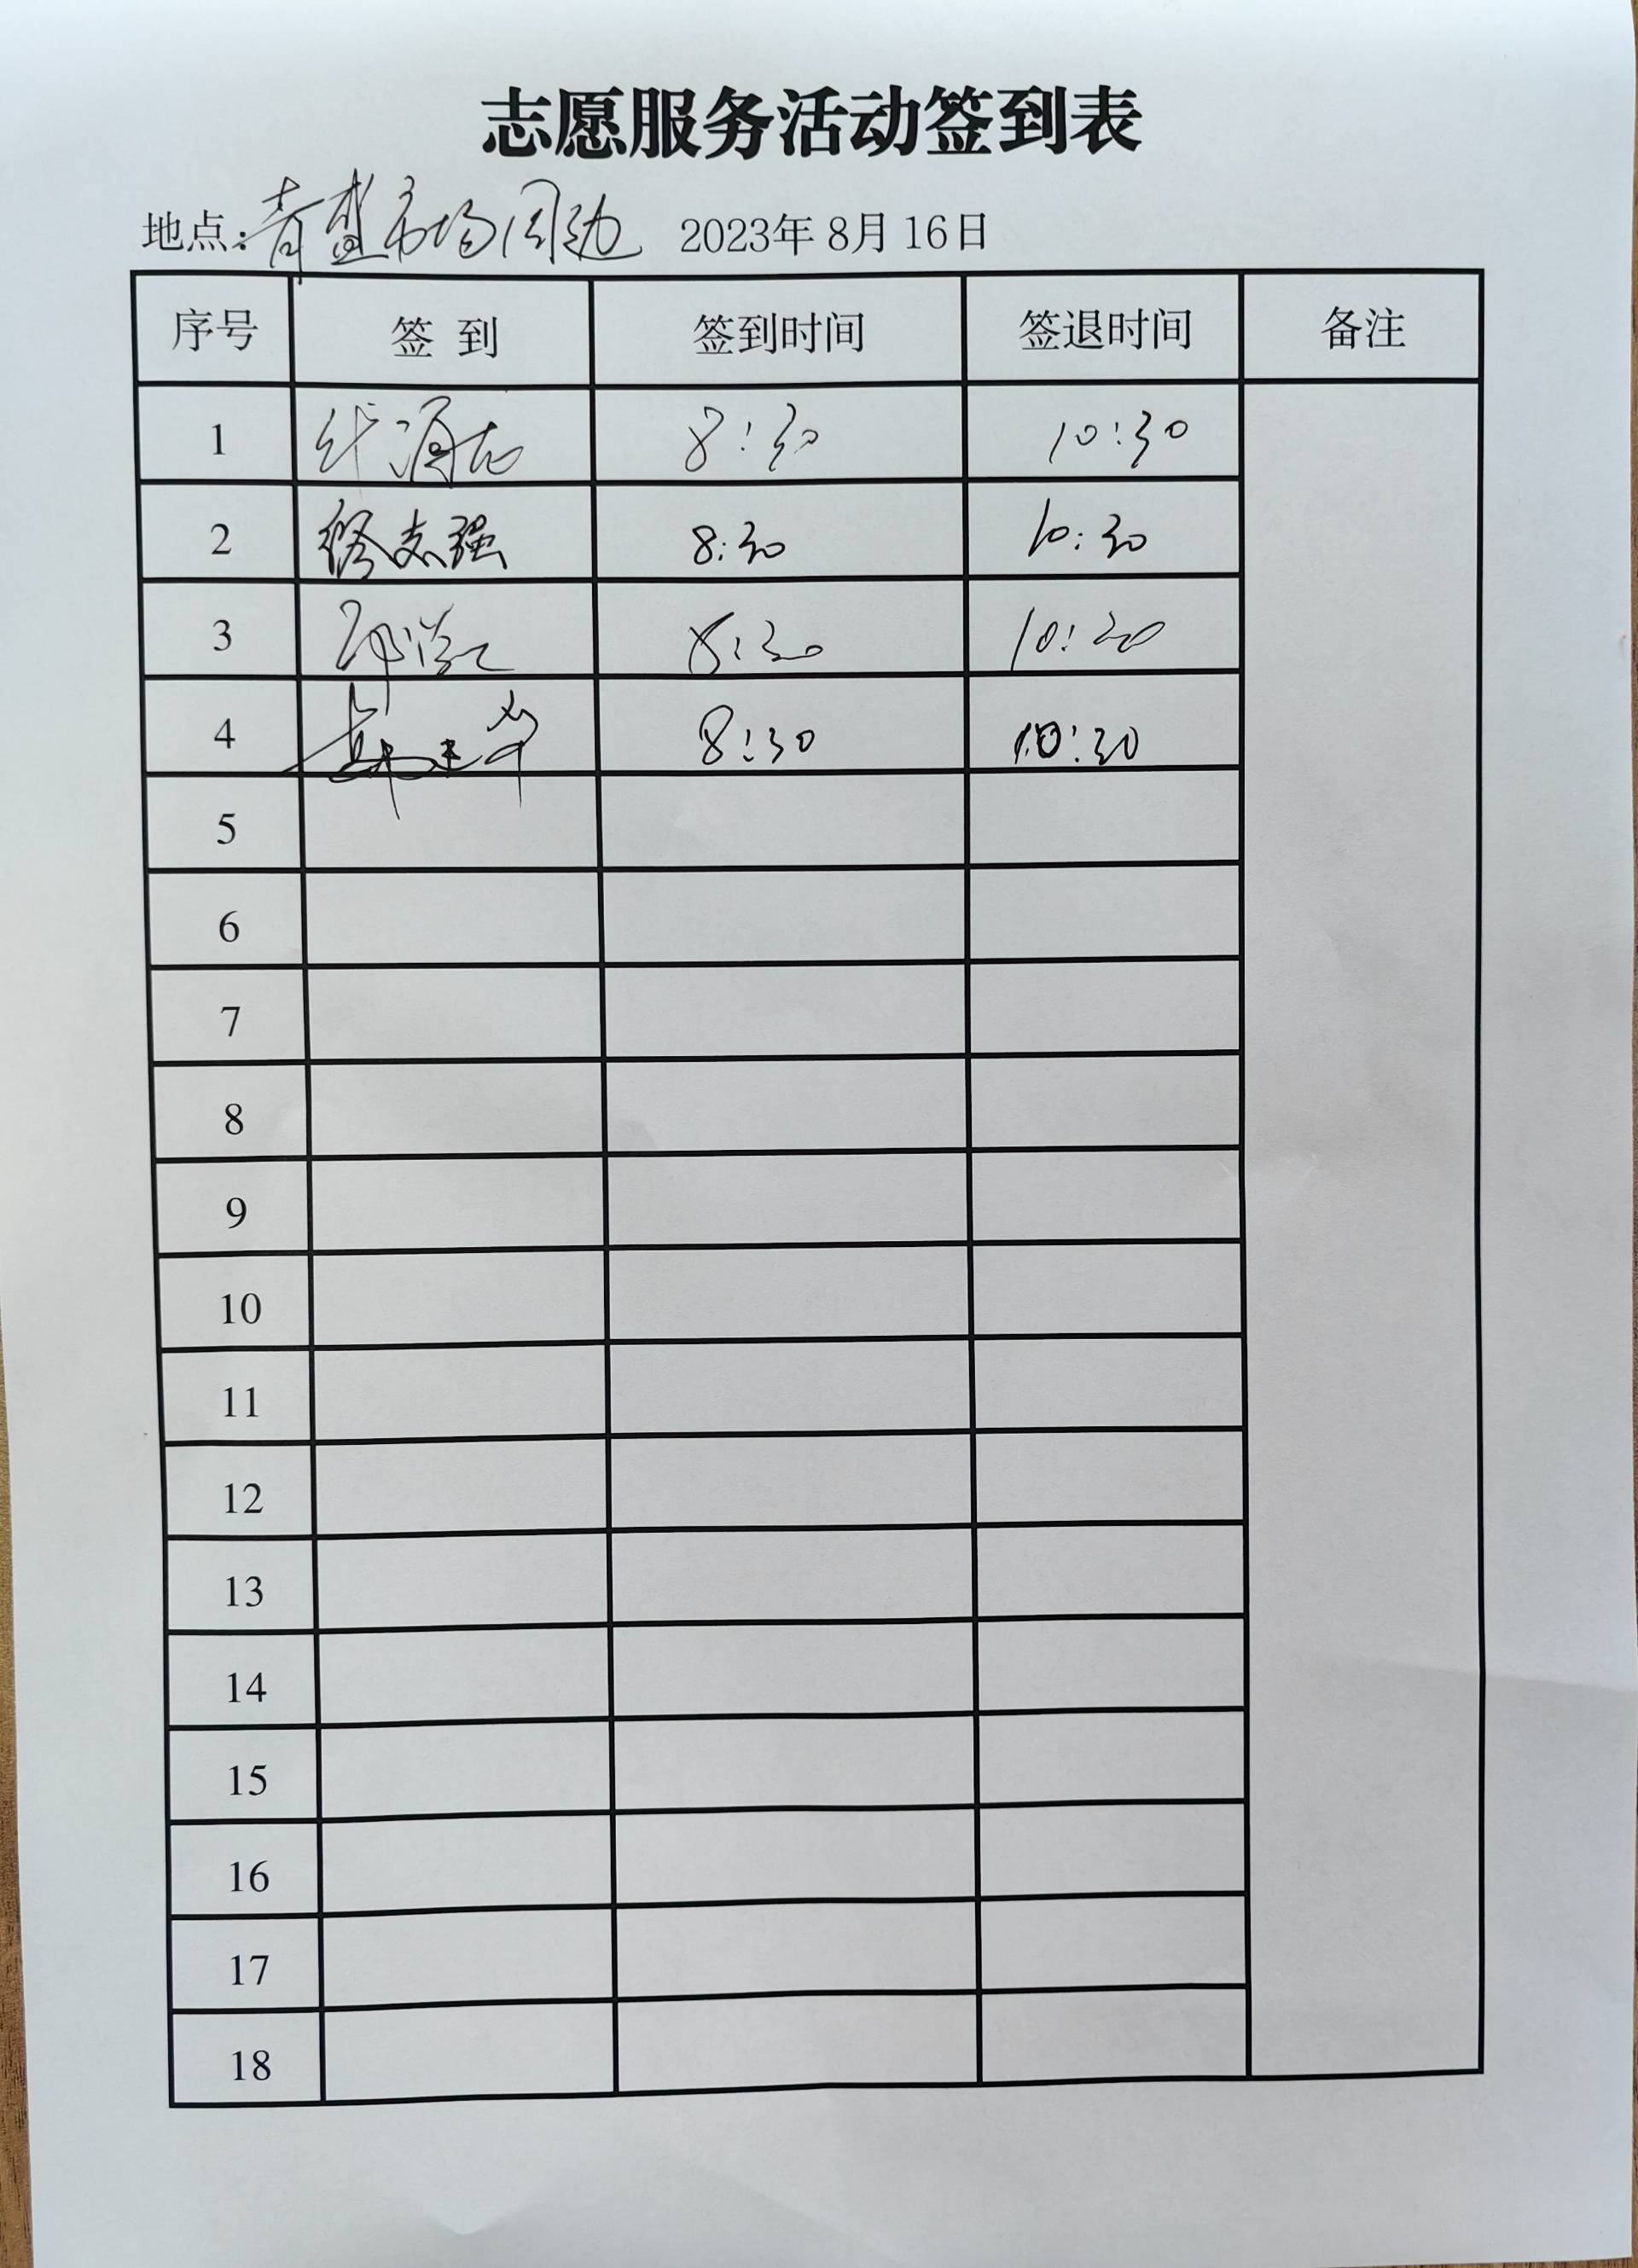 志愿服务活动签到表
地点:青盛市场周边 2023年8月16日
序号 签到 签到时间 签退时间 备注
1 8:30 10:30
2 修志强 8:30 10:30
3 8:30 10:30
4 8:30 10:30
5
6
7
8
9
10
11
12
13
14
15
16
17
18